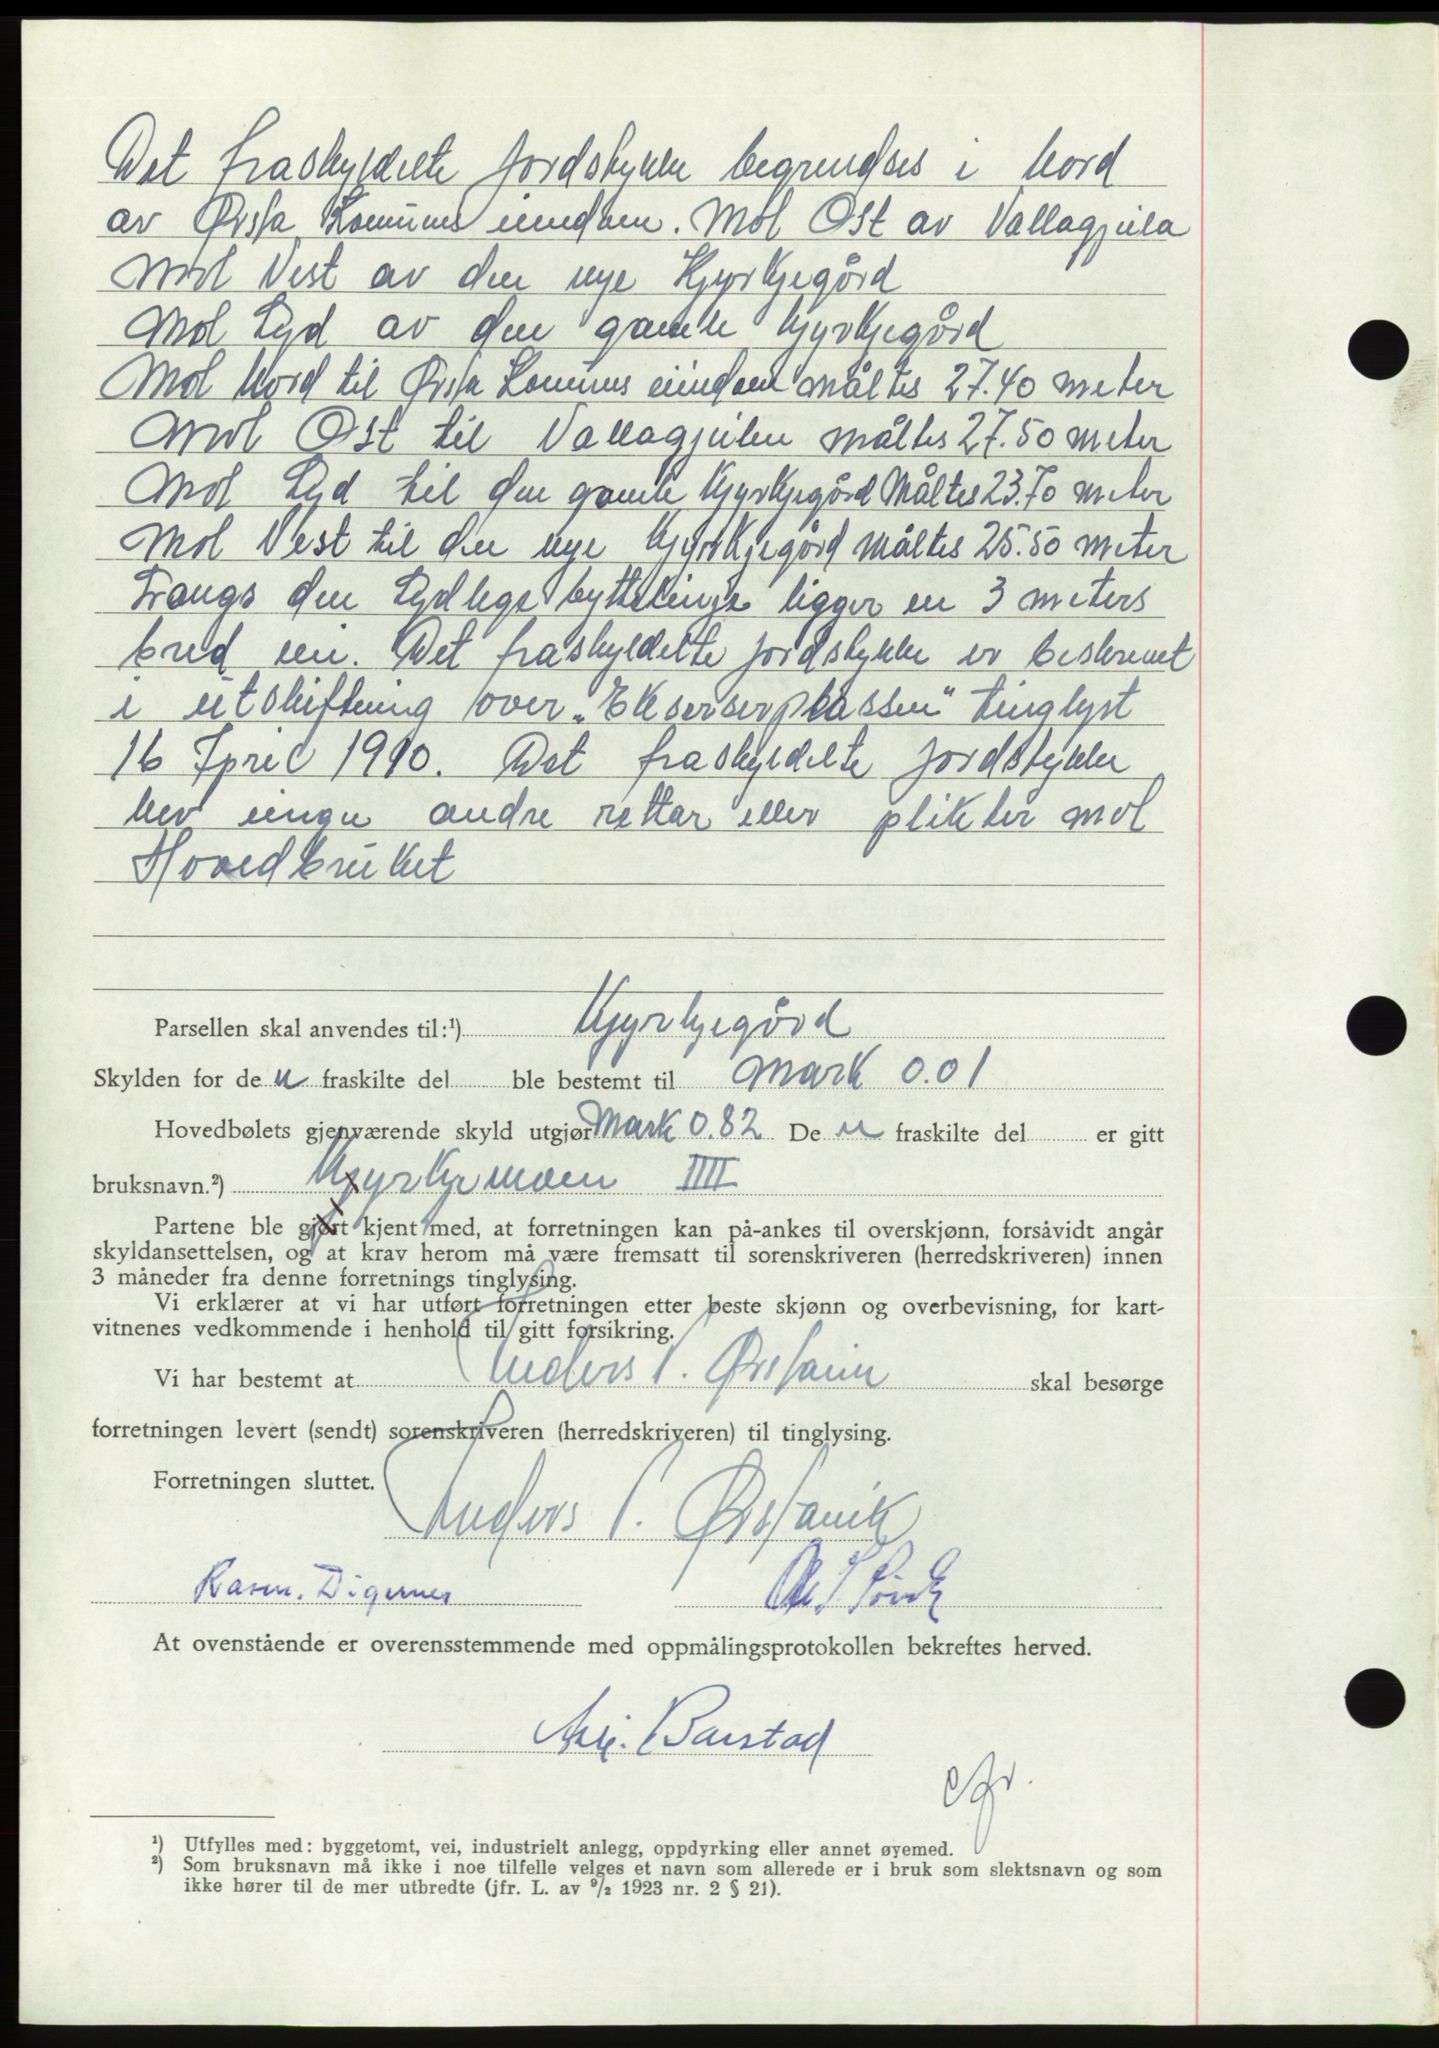 Det fraskyldelte jordstykke begrendses i Nord
av Ørsta Komuns eiendom. Mot Ost av Vallagjula
Mot Vest av den nye Kjyrkjegård
Mot Syd av den gamle Kjyrkjegård
Mot Nord til Ørsta Komuns eiindom måltes 27.40 meter
Mot Ost til Vallagjulen måltes 27.50 meter
Mot Syd til den gamle Kjyrkjegård Måltes 23.70 meter
Mot Vest til den nye Kjyrkjegård måltes 25.50 meter
Langs den Sydlege byttelinje ligger en 3 meters
bred vei. Det fraskyldelte jordstykke er beskrevet
i utskiftning over „Ekserserplassen" tinglyst
16 April 1910. Det fraskyldelte jordstykke
hev eingu andre rettar eller plikter mot
Hovedbruket
Parsellen skal anvendes til:¹) Kjyrkjegård
Skylden for de n fraskilte del ble bestemt til Mark 0.01
Hovedbølets gjenværende skyld utgjør Mark 0.82 De n fraskilte del er gitt
bruksnavn.²) Kjyrkjemoen IIII
Partene ble gjort kjent med, at forretningen kan på-ankes til overskjønn, forsåvidt angår
skyldansettelsen, og at krav herom må være fremsatt til sorenskriveren (herredskriveren) innen
3 måneder fra denne forretnings tinglysing.
Vi erklærer at vi har utført forretningen etter beste skjønn og overbevisning, for kart-
vitnenes vedkommende i henhold til gitt forsikring.
Vi har bestemt at Anders P. Ørstavik skal besørge
forretningen levert (sendt) sorenskriveren (herredskriveren) til tinglysing.
Forretningen sluttet.
Anders P. Ørstavik
Rasm. Digernes
At ovenstående er overensstemmende med oppmålingsprotokollen bekreftes herved.
Barstad
¹) Utfylles med: byggetomt, vei, industrielt anlegg, oppdyrking eller annet øyemed.
²) Som bruksnavn må ikke i noe tilfelle velges et navn som allerede er i bruk som slektsnavn og som
ikke hører til de mer utbredte (jfr. L. av 9/2 1923 nr. 2 § 21).